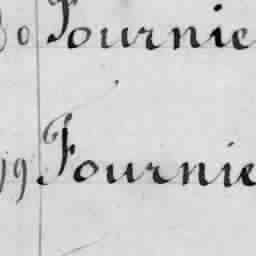 0 Fournie
19 Fournie